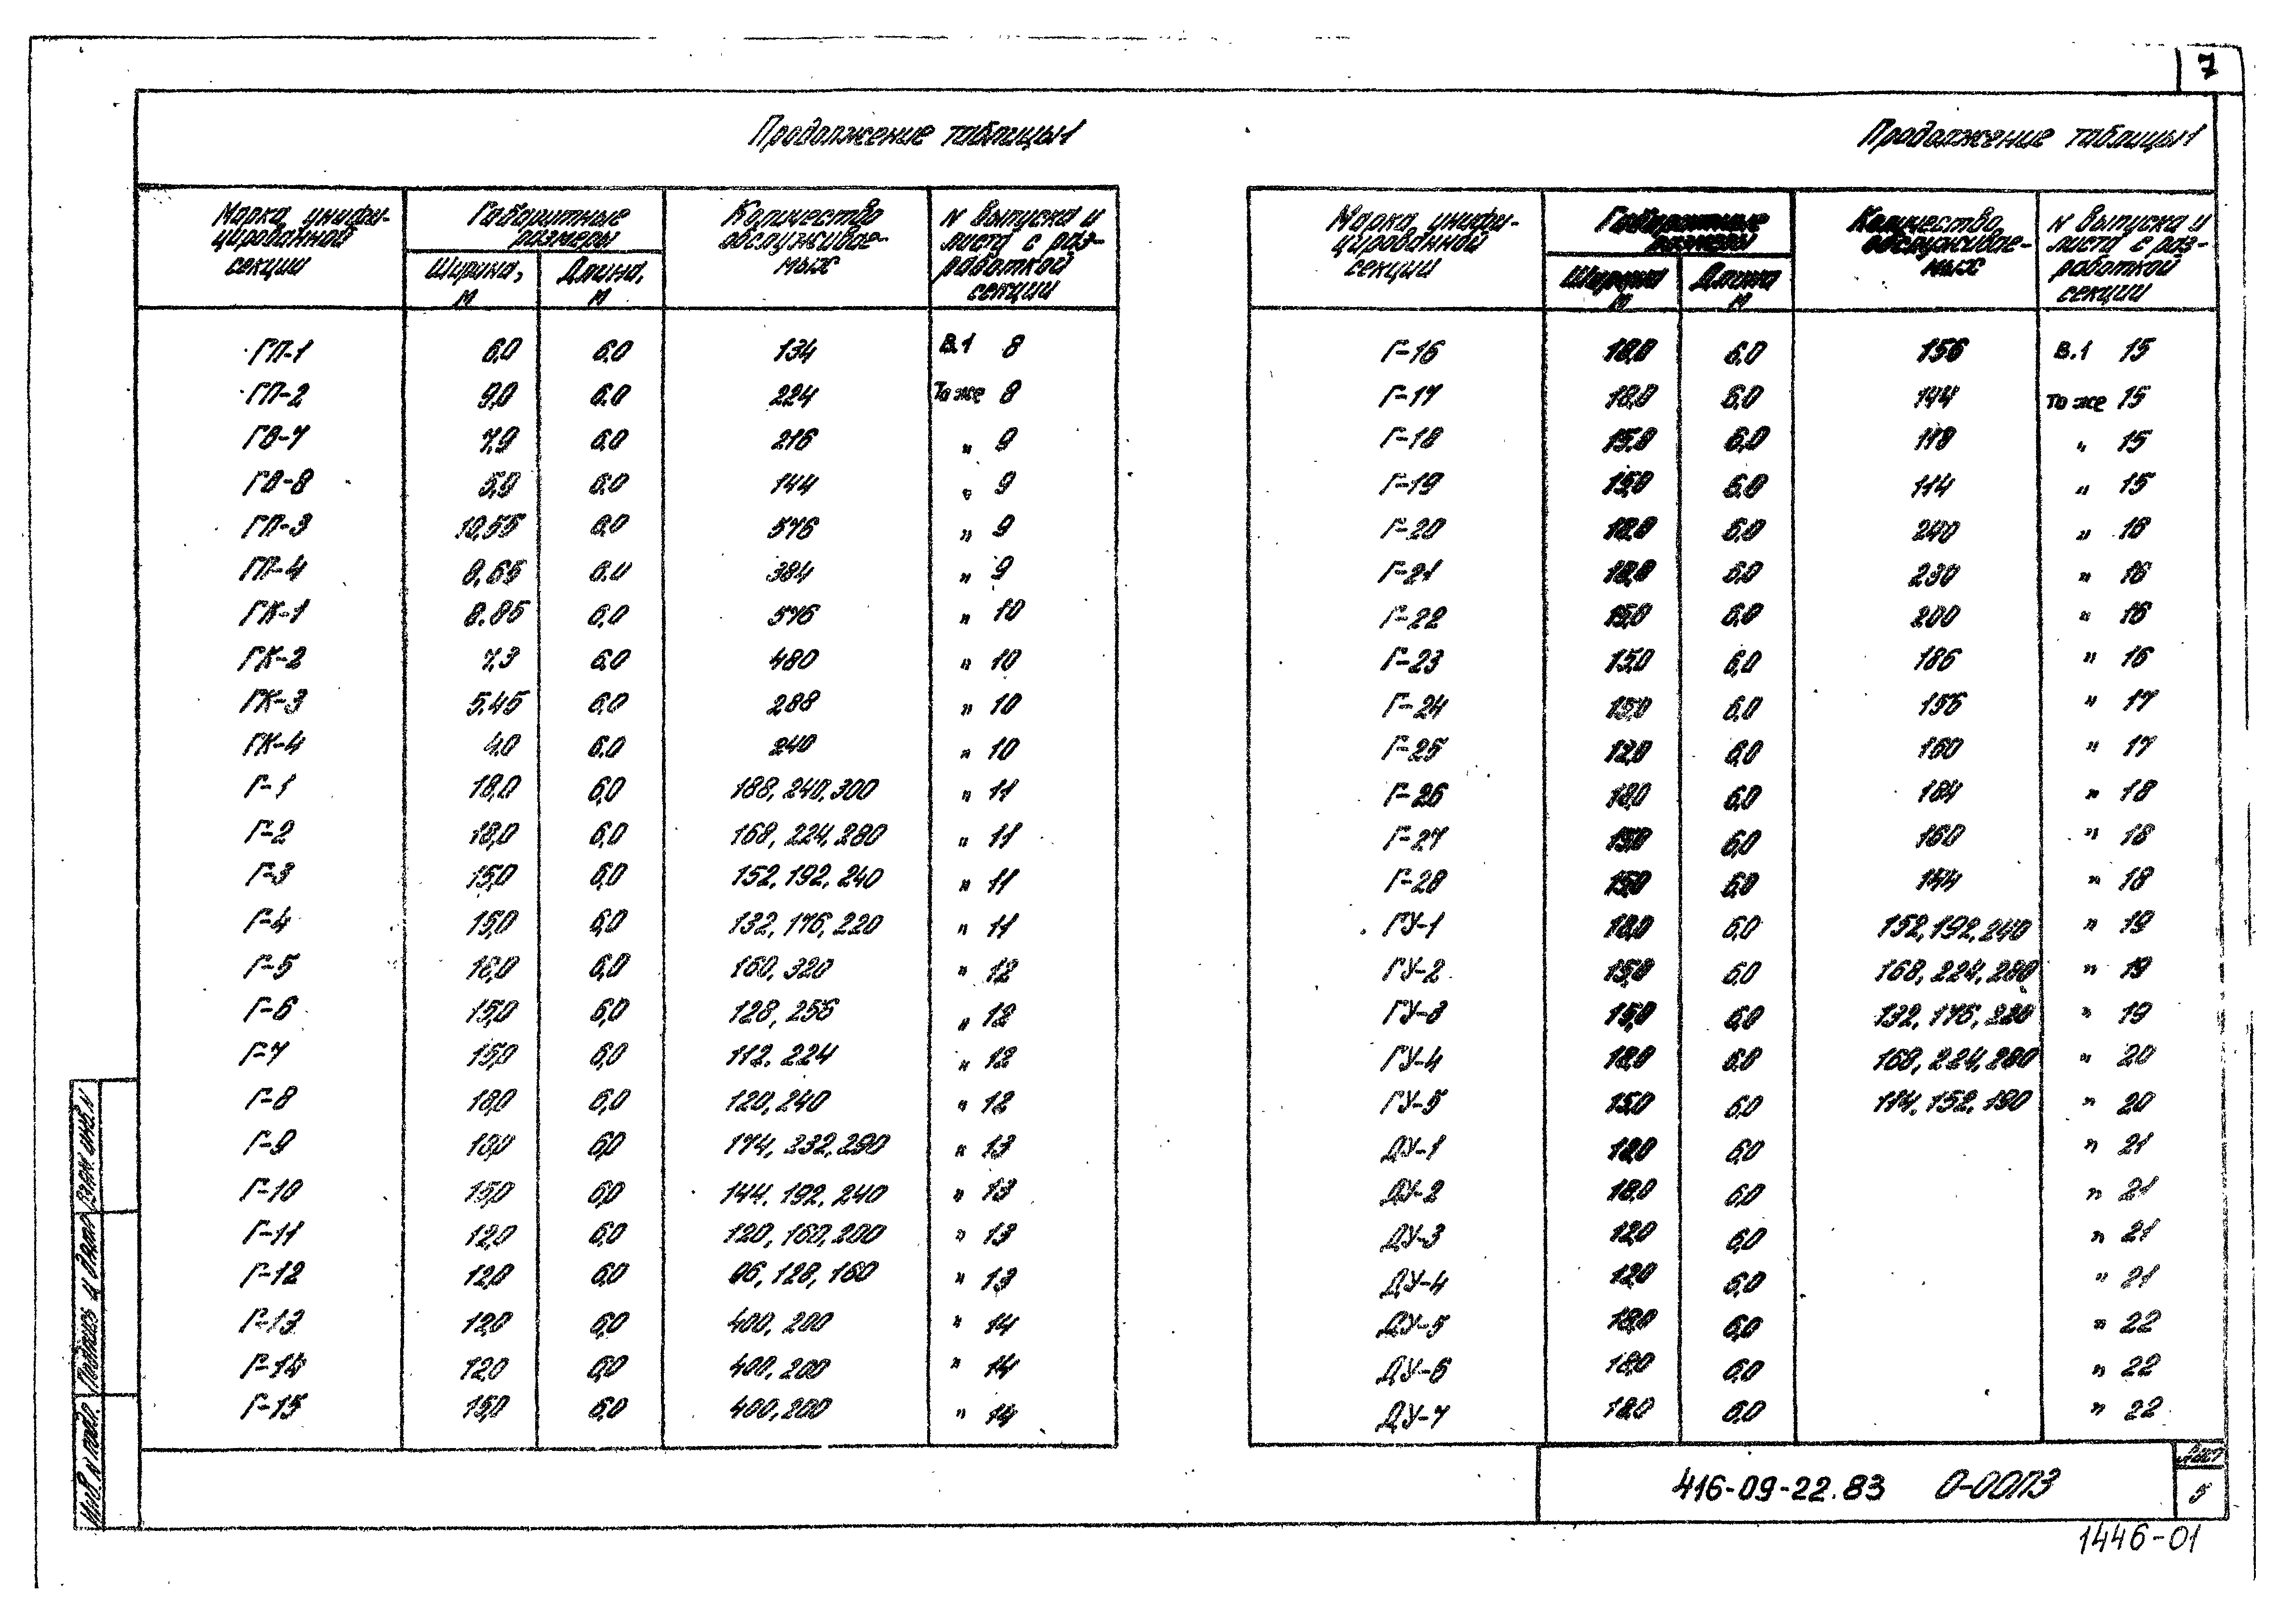 7
Продолжение таблицы 1
Марка унифи-
цированной
секции
Габаритные
размеры
Ширина,
м
Длина,
м
Количество
обслуживае-
мых
N выпуска и
листа с раз-
работкой
секции
ГП-1 6,0 6,0 134 В.1 8
ГП-2 9,0 6.0 224 То же 8
ГВ-7 7,9 6,0 216 " 9
ГВ-8 5,9 6.0 144 " 9
ГП-3 10,55 6.0 576 " 9
ГП-4 8,65 384 " 9
ГК-1 8.85 6,0 576 " 10
ГК-2 7,3 6.0 480 " 10
ГК-3 5.45 6.0 288 " 10
ГК-4 4.0 6.0 240 " 10
Г-1 18,0 6,0 188, 240, 300 " 11
Г-2 18,0 6,0 168, 224, 280 " 11
Г-3 15,0 6,0 152, 192, 240 " 11
Г-4 15,0 6,0 132, 176, 220 " 11
Г-5 18,0 6,0 160, 320 " 12
Г-6 15,0 6,0 128, 256 " 12
Г-7 15,0 6,0 112. 224 " 12
Г-8 18,0 6,0 120, 240 " 12
Г-9 18,0 6,0 174, 232, 290 " 13
Г-10 15,0 6,0 144. 192. 240 " 13
Г-11 12,0 6,0 120, 160, 200 " 13
Г-12 12,0 6,0 96, 128, 160 " 13
Г-13 12,0 6,0 400, 200 " 14
Г-14 12,0 6,0 400, 200 " 14
Г-15 15,0 6,0 400, 200 " 14
Продолжение таблицы 1
Марка унифи-
цированной
секции
Габаритные
размеры
Ширина
м
Длина
м
Количество
обслуживае-
мых
N выпуска и
листа с раз-
работкой
секции
Г-16 18,0 6,0 156 В.1 15
Г-17 18,0 6,0 144 То же 15
Г-18 15,0 6,0 118 " 15
Г-19 15,0 6.0 114 " 15
Г-20 18,0 6,0 240 " 16
Г-21 18,0 6,0 230 " 16
Г-22 15,0 6,0 200 " 16
Г-23 15,0 6,0 186 " 16
Г-24 15,0 6,0 156 " 17
Г-25 12,0 6,0 160 " 17
Г-26 18,0 6,0 184 " 18
Г-27 15,0 6,0 160 " 18
Г-28 15,0 6,0 144 " 18
ГУ-1 18,0 6,0 152, 192, 240 " 19
ГУ-2 15,0 6,0 168, 224, 280 " 19
ГУ-3 15,0 6,0 132, 176, 220 " 19
ГУ-4 18,0 6,0 168, 224, 280 " 20
ГУ-5 15,0 6,0 114, 152, 190 " 20
ДУ-1 18,0 6,0 " 21
ДУ-2 18,0 6,0 " 21
ДУ-3 12,0 6,0 " 21
ДУ-4 12,0 6,0 " 21
ДУ-5 18,0 6,0 " 22
ДУ-6 18,0 6,0 " 22
ДУ-7 18,0 6,0 " 22
Инв. N подл. Подпись и дата Взам. инв. N
416-09-22.83 0-00ПЗ
Лист
5
1446-01